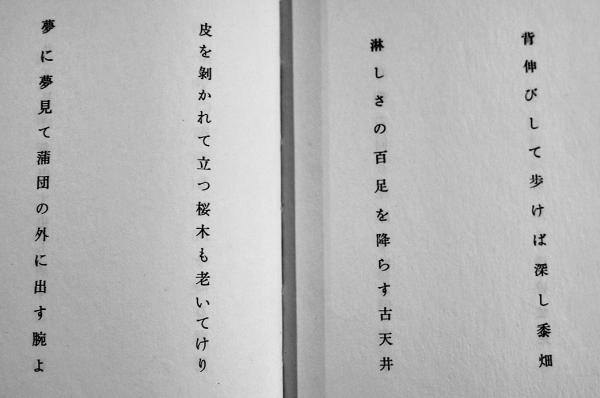 背伸びして歩けば深し黍畑
淋しさの百足を降らす古天井
皮を剝かれて立つ桜木も老いてけり
夢に夢見て蒲団の外に出す腕よ